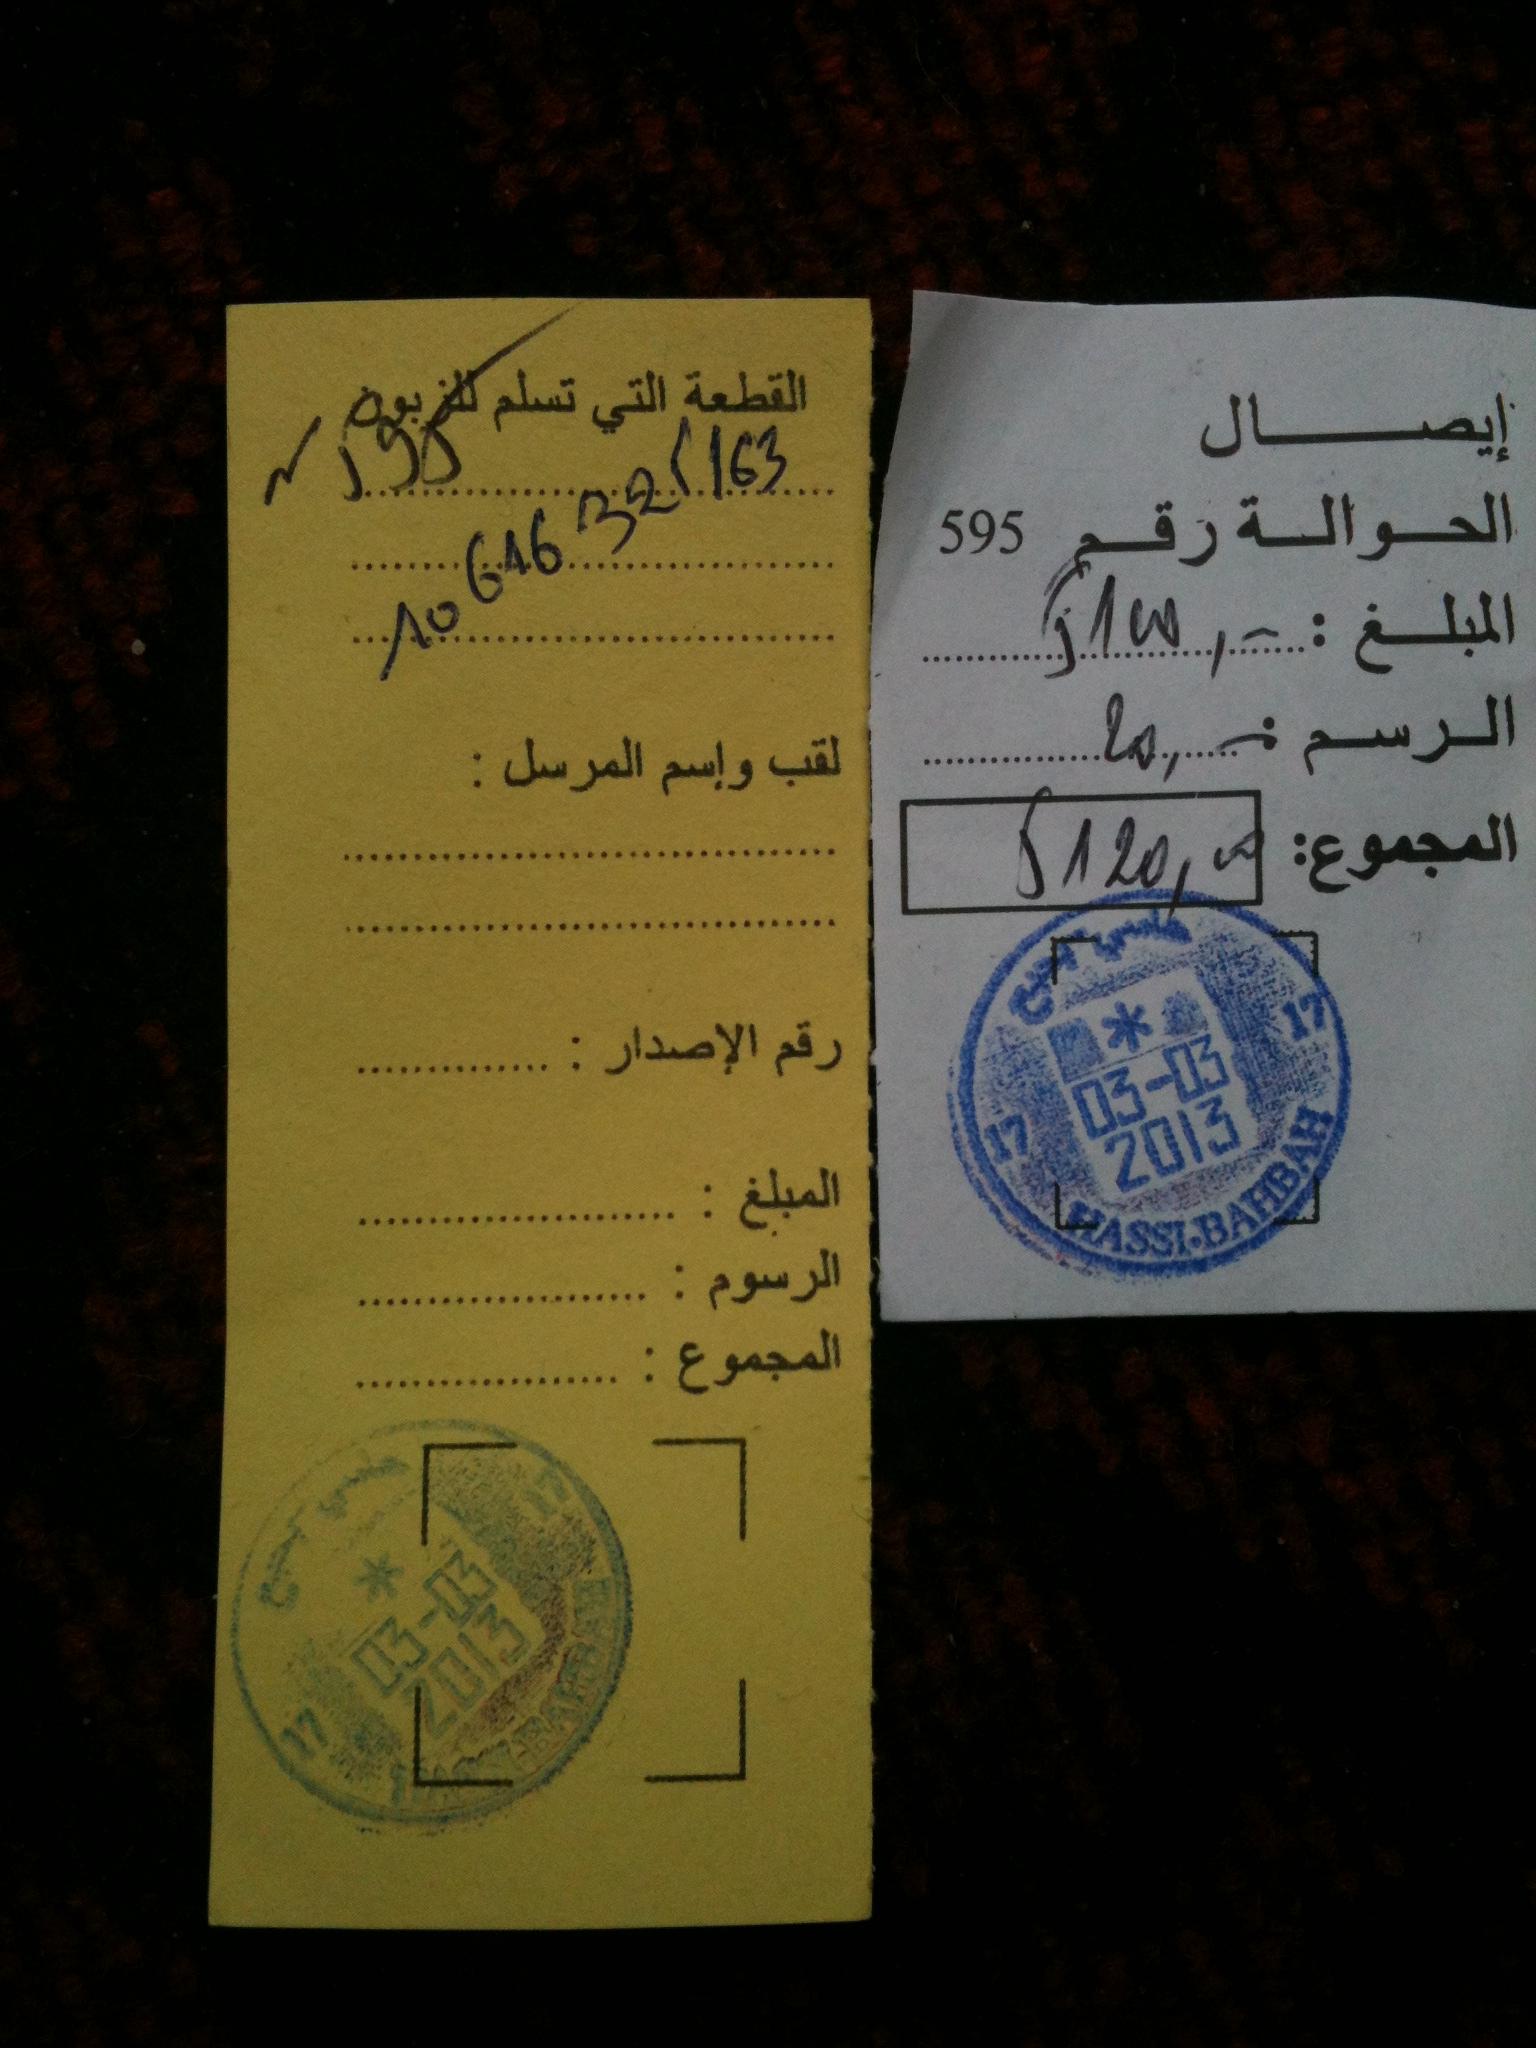 القطعة التي تسلم للزبون
N° 595
10646321163
لقب وإسم المرسل :
رقم الإصدار :
المبلغ :
الرسوم :
المجموع :
17
03-03
2013
17
إيصال
الحوالة رقم 595
المبلغ : 5100,00
الرسم : 20,00
المجموع: 5120,00
حاسي بحبح
17
03-03
2013
17
HASSI-BAHBAH